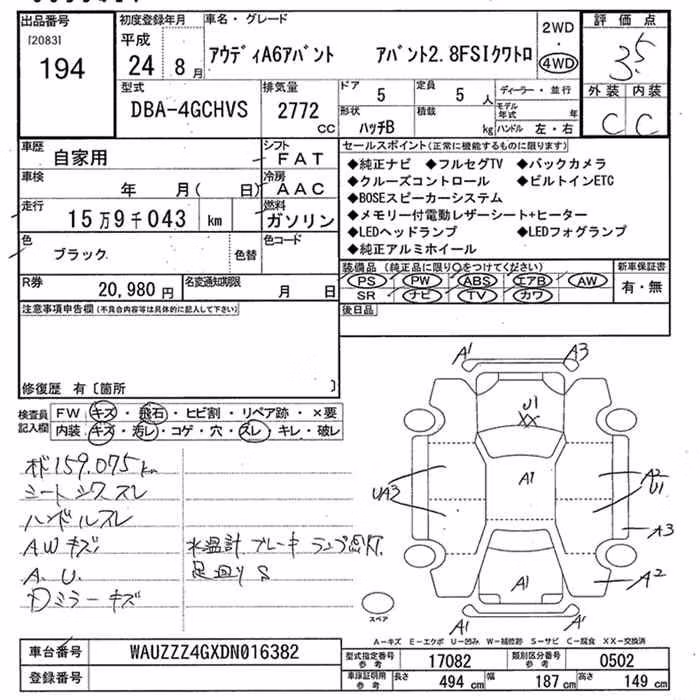 出品番号
[2083]
194
初度登録年月
平成
24 8月
車名・グレード
アウディA6アバント アバント2.8FSIクワトロ
2WD
・
4WD
評価点
3.5
外装 内装
C C
型式
DBA-4GCHVS
排気量
2772 CC
ドア
5
定員
5 人
形状
ハッチB
積載
kg
ディーラー・並行
モデル年式 年
ハンドル 左・右
車歴
自家用
シフト
FAT
車検
年 月( 日)
冷房
AAC
走行
15万9千043 km
燃料
ガソリン
色
ブラック
色替
色コード
R券
20,980円
名変通知期限
月 日
セールスポイント(正常に機能するものに限ります)
◆純正ナビ ◆フルセグTV ◆バックカメラ
◆クルーズコントロール ◆ビルトインETC
◆BOSEスピーカーシステム
◆メモリー付電動レザーシート+ヒーター
◆LEDヘッドランプ ◆LEDフォグランプ
◆純正アルミホイール
装備品(純正品に限り○をつけてください)
PS PW ABS エアB AW
SR ナビ TV カワ
新車保証書
有・無
後日品
注意事項申告欄(不具合内容等は具体的に記入して下さい)
修復歴 有〔箇所 〕
検査員記入欄
FW キズ・飛石・ヒビ割・リペア跡・×要
内装 キズ・汚レ・コゲ・穴・スレ・キレ・破レ
159.075 km
シート シワ スレ
ハンドルスレ
AWキズ
A.U.
ミラーキズ
水温計 ブレーキ ランプ点灯
足廻り S
A1 A3
U1
XX
A1
UA3
A2
U1
A3
A1
A2
A1 A1
スペア
A-キズ E-エクボ U-凹み W-補修跡 S-サビ C-腐食 XX-交換済
車台番号
WAUZZZ4GXDN016382
登録番号
型式指定番号 参考
17082
類別区分番号 参考
0502
車庫証明用 参考
長さ 494 cm 幅 187 cm 高さ 149 cm